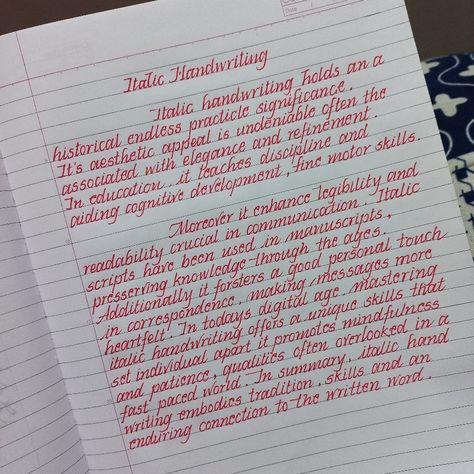 Date
Italic Handwriting
Italic handwriting holds an a
historical endless practicle significance.
It's aesthetic appeal is undeniable often the
associated with elegance and refinement.
In education, it teaches discipline and
aiding cognitive development, fine motor skills.
Moreover it enhance legibility and
readability crucial in communication. Italic
scripts have been used in manuscripts,
presserving knowledge through the ages.
Additionally it forsters a good personal touch
in correspondence, making messages more
heartfelt. In todays digital age, mastering
italic handwriting offers a unique skills that
set individual apart it promotes mindfulness
and patience, qualities often overlooked in a
fast paced world. In summary, italic hand
writing embodies tradition, skills and an
enduring connection to the written word.